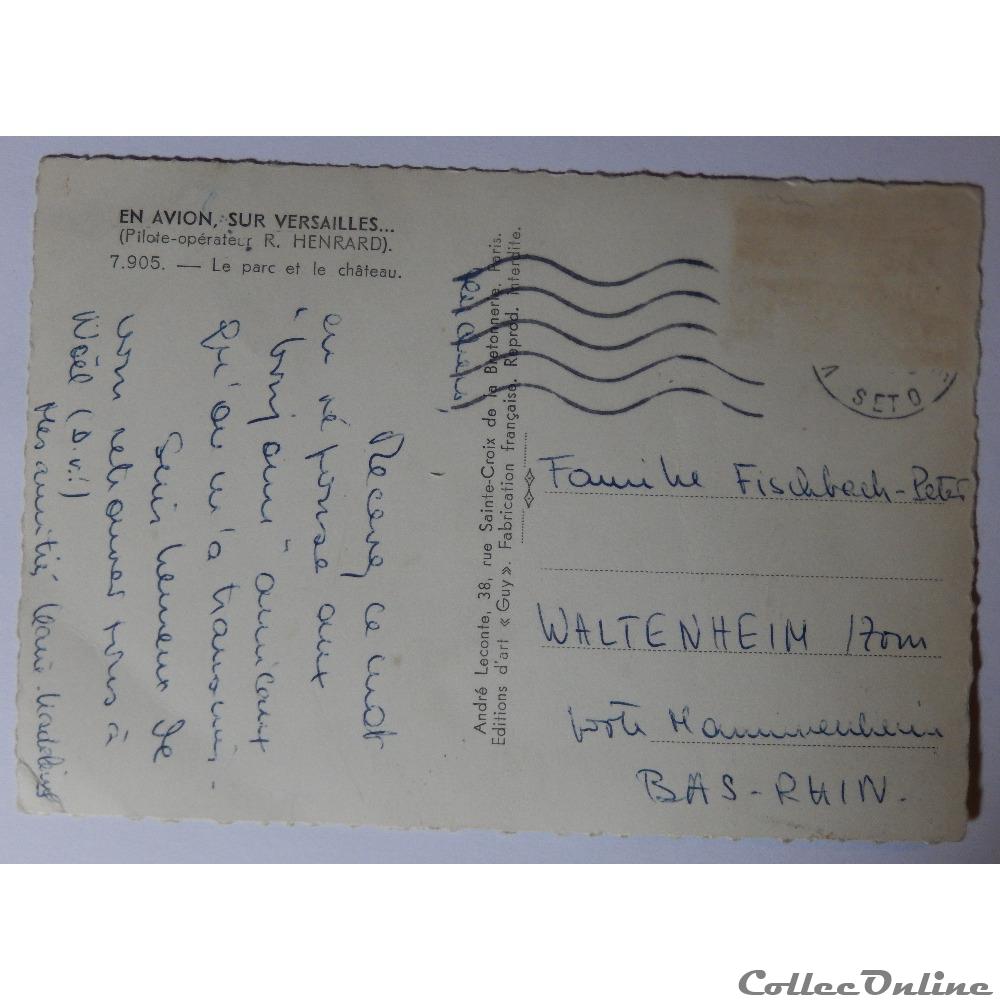 EN AVION, SUR VERSAILLES...
(Pilote-opérateur R. HENRARD).
7.905. — Le parc et le château.
Mes amis,
Recevez ce mot
en réponse aux
"bonjours" amicaux
qu'on m'a transmis.
Serais heureux de
vous retrouver tous à
Noël (D.v.!)
Mes amitiés
André Leconte, 38, rue Sainte-Croix de la Bretonnerie, Paris.
Editions d'art « Guy ». Fabrication française. Reprod. interdite.
SETO
Famille Fischbach-Peter
WALTENHEIM /Zorn
poste Hommenheim
BAS-RHIN.
CollecOnline